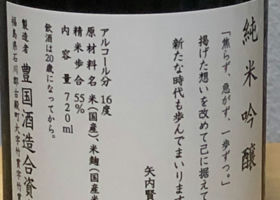 純米吟醸
「焦らず、急がず、一歩ずつ。」
掲げた想いを改めて己に据えて
新たな時代も歩んでまいります
矢内賢
アルコール分 16度
原材料名 米(国産)、米麹(国産米
精米歩合 55%
内容量 720ml
飲酒は20歳になってから。
製造者 豊国酒造合資
福島県石川郡古殿町大字竹貫字竹貫